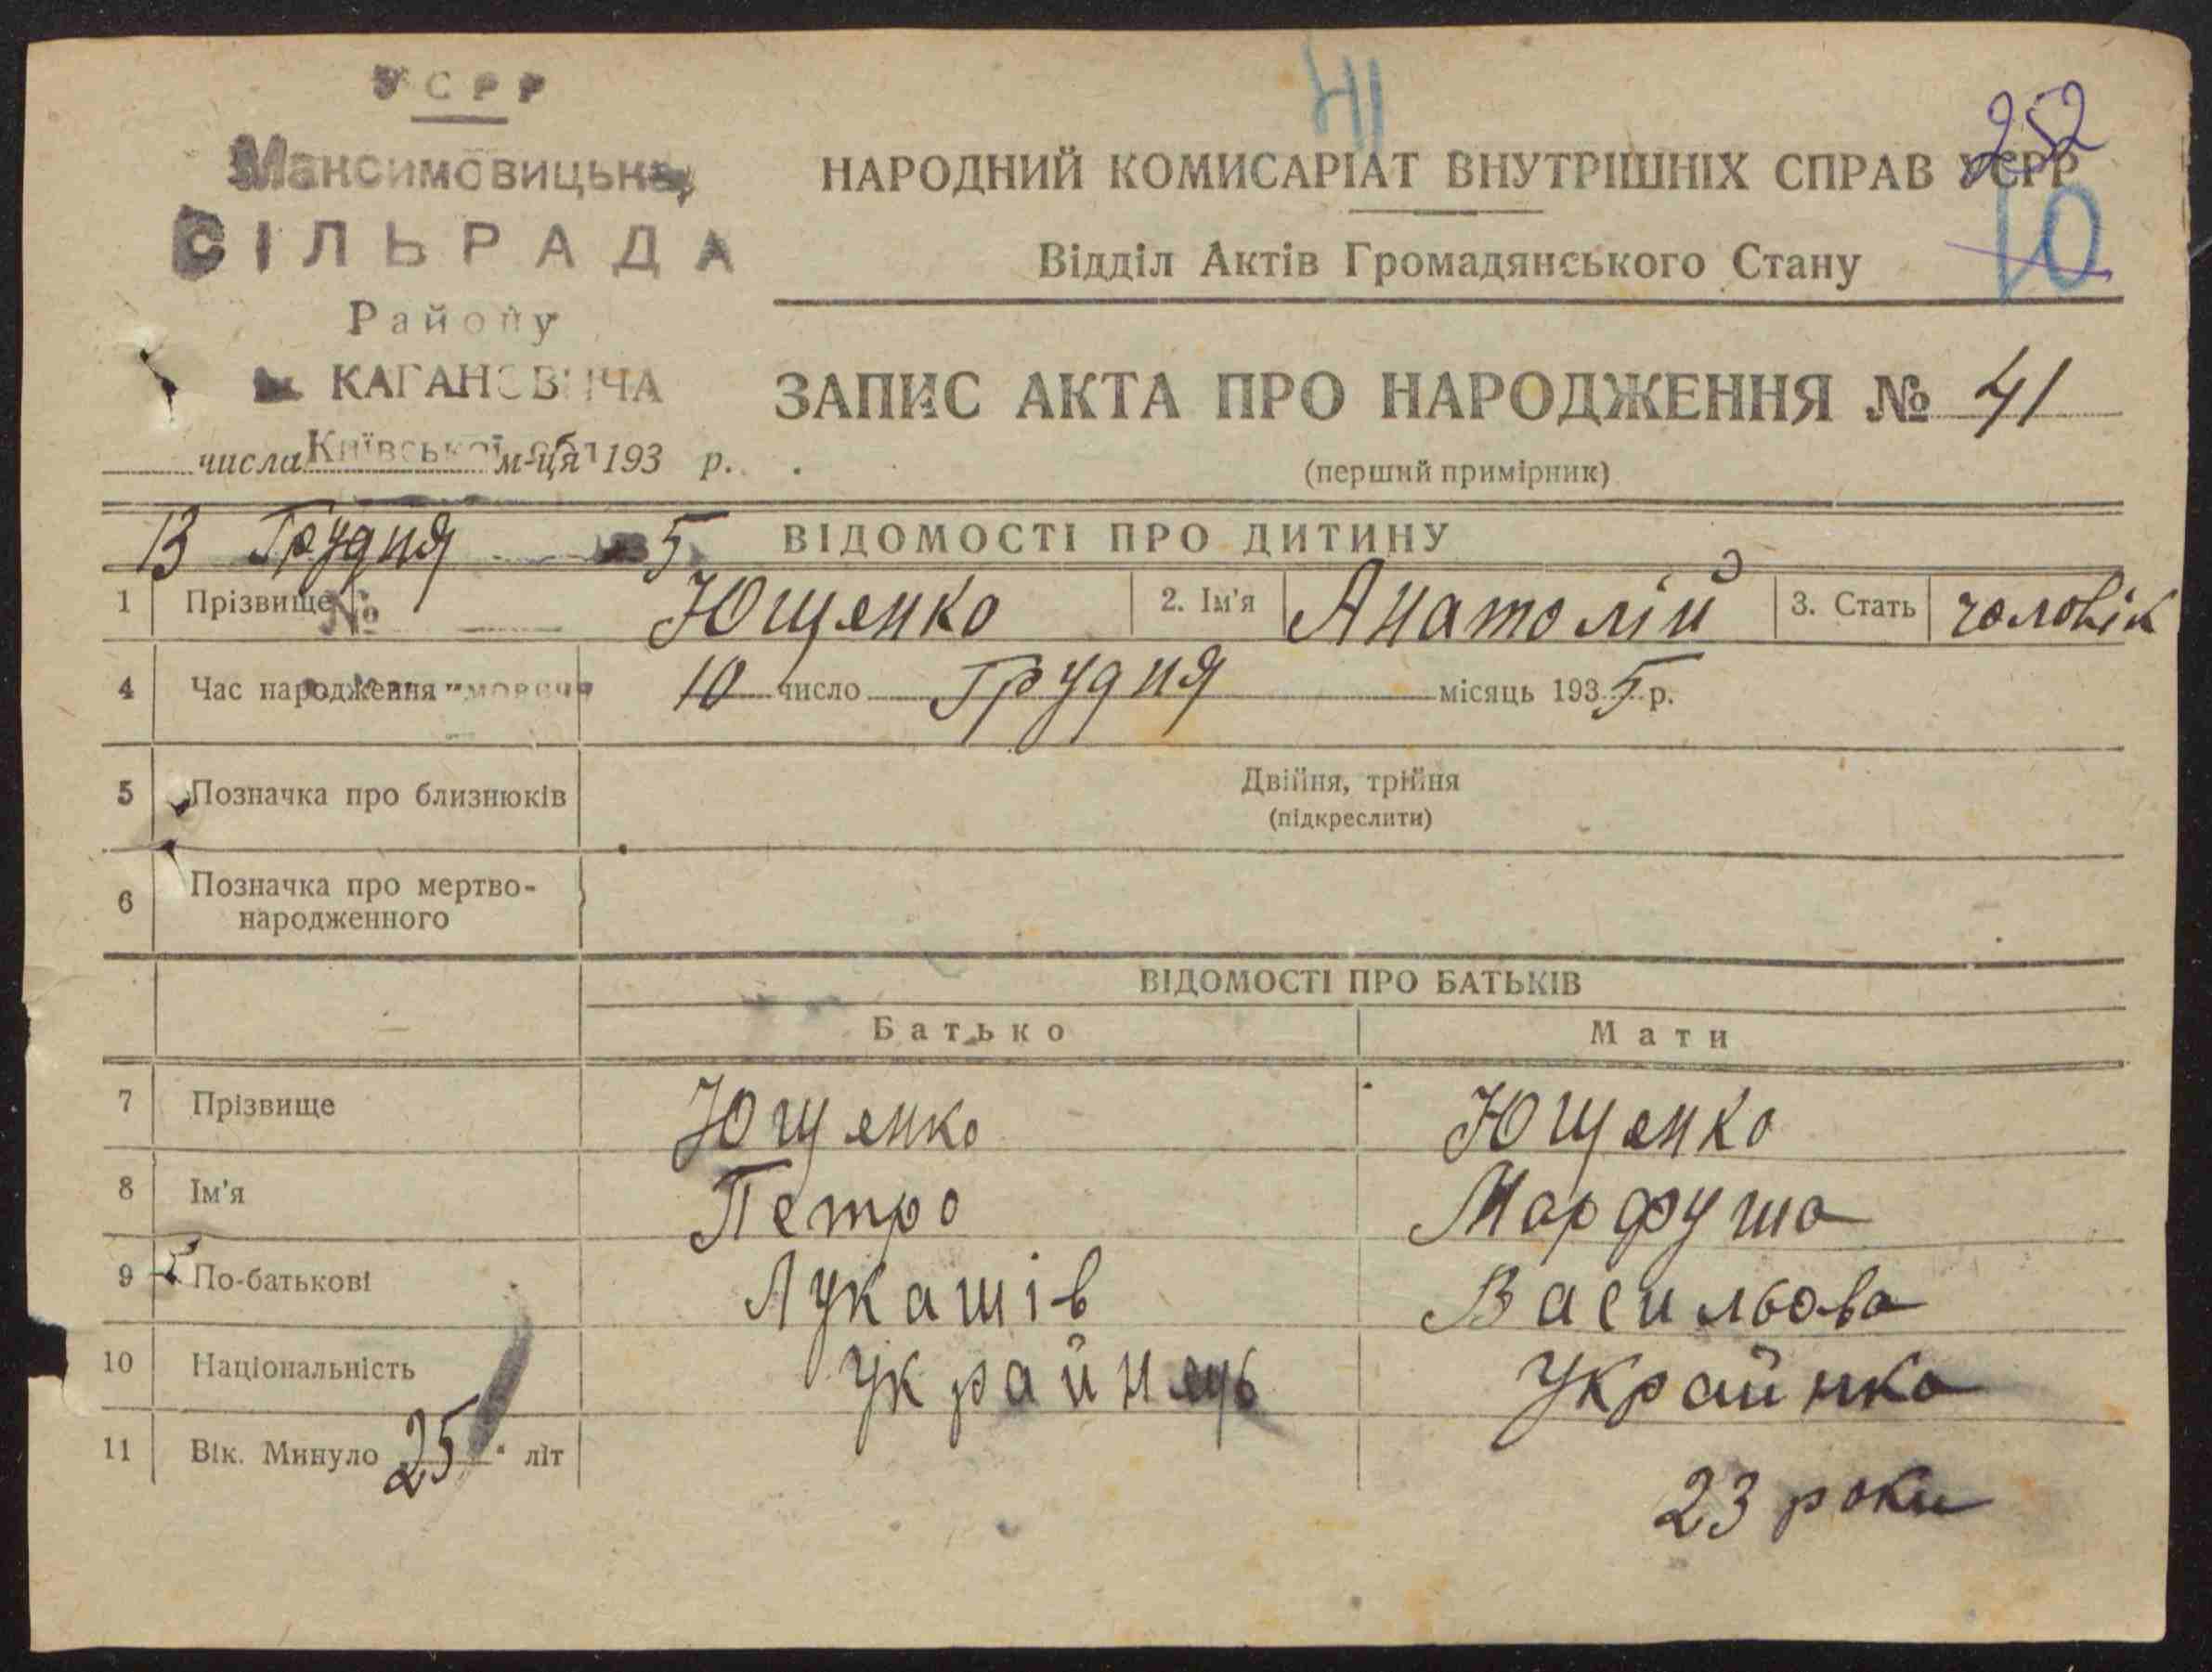 УСРР
Максимовицька
СІЛЬРАДА
Району
КАГАНОВИЧА
Київської обл
числа м-ця 193 р.
13 Грудня 5
№
41
252
10
НАРОДНИЙ КОМИСАРІАТ ВНУТРІШНІХ СПРАВ УСРР
Відділ Актів Громадянського Стану
ЗАПИС АКТА ПРО НАРОДЖЕННЯ № 41
(перший примірник)
ВІДОМОСТІ ПРО ДИТИНУ
1 Прізвище Ющенко 2. Ім'я Анатолій 3. Стать чоловік
4 Час народження 10 число Грудня місяць 1935 р.
5 Позначка про близнюків Двійня, трійня
(підкреслити)
6 Позначка про мертво-
народженного
ВІДОМОСТІ ПРО БАТЬКІВ
Батько Мати
7 Прізвище Ющенко Ющенко
8 Ім'я Петро Марфуша
9 По-батькові Лукашів Васильова
10 Національність Українець Українка
11 Вік. Минуло 25 літ 23 роки